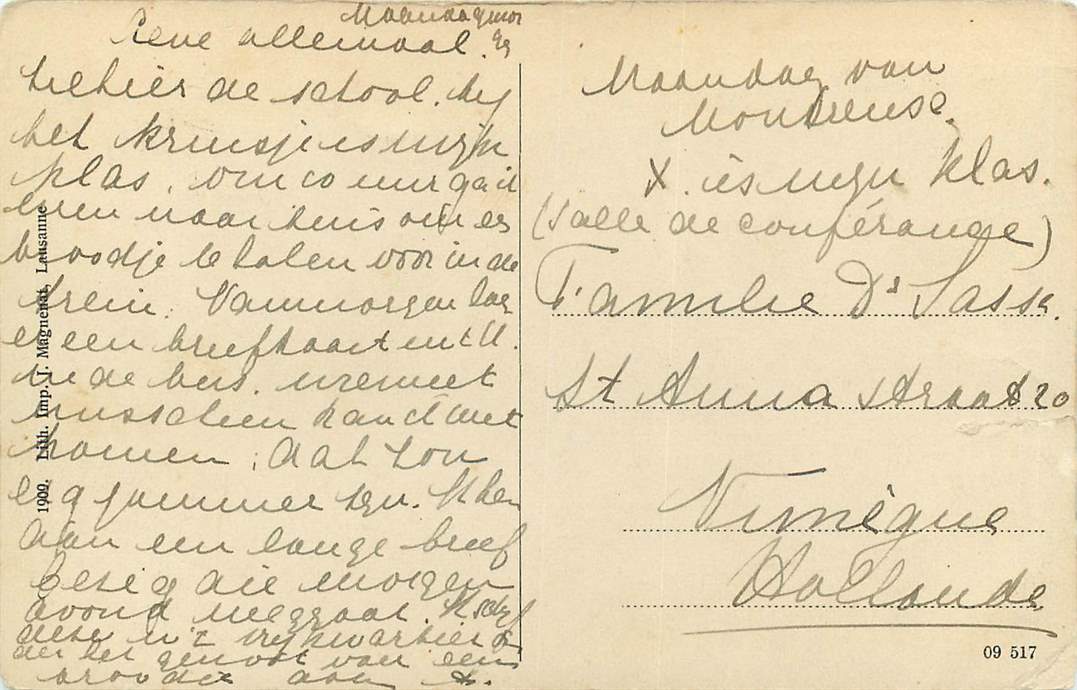 Maandagmor
Lieve allemaal.
Ziehier de school. bij
het kruisje is mijn
klas, om 10 uur ga ik
even naar huis om es
broodje te halen voor in de
trein. Vanmorgen lag
er een briefkaart uit U.
in de bus.
misschien kan niet
komen, dat zou
erg jammer zijn. Ik ben
aan een lange brief
bezig die morgen
avond weggaat. Ik schrijf
deze in 't vrijkwartier
der het genot van een
broodje aan
1909. Lith. Imp. J. Magnenat, Lausanne
Maandag van
Montreux.
X. is mijn klas.
(Salle de conférange)
Familie Dr Sassen.
St Anna straat 20
Nimègue
Hollande
09 517